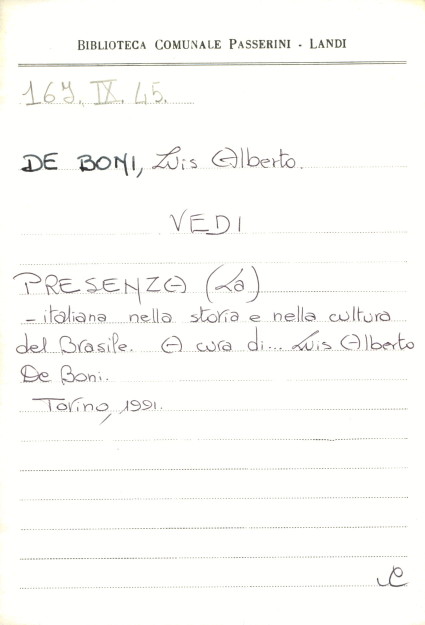 BIBLIOTECA COMUNALE PASSERINI - LANDI
167. IX. 45.
DE BONI, Luis Alberto.
VEDI
PRESENZA (La)
- italiana nella storia e nella cultura
del Brasile. A cura di... Luis Alberto
De Boni.
Torino, 1991.